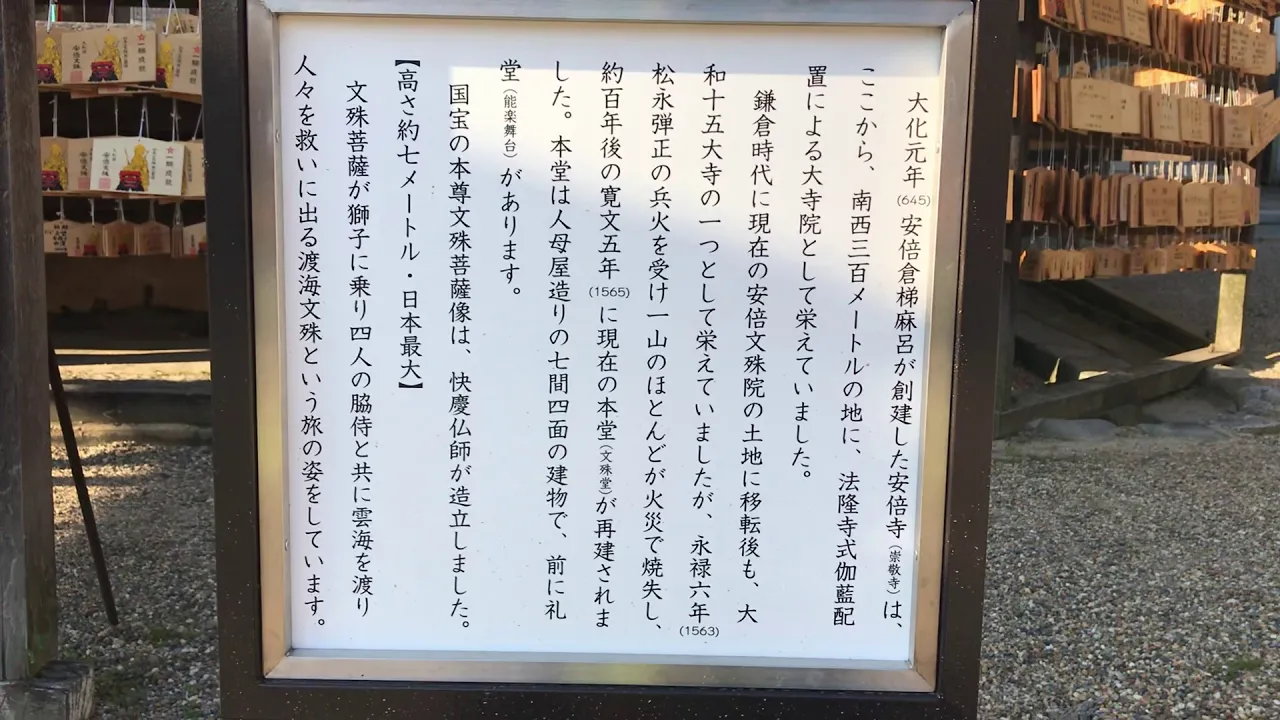 大化元年(645)安倍倉梯麻呂が創建した安倍寺(崇敬寺)は、
ここから、南西三百メートルの地に、法隆寺式伽藍配
置による大寺院として栄えていました。
鎌倉時代に現在の安倍文殊院の土地に移転後も、大
和十五大寺の一つとして栄えていましたが、永禄六年(1563)
松永弾正の兵火を受け一山のほとんどが火災で焼失し、
約百年後の寛文五年(1565)に現在の本堂(文殊堂)が再建されま
した。本堂は人母屋造りの七間四面の建物で、前に礼
堂(能楽舞台)があります。
国宝の本尊文殊菩薩像は、快慶仏師が造立しました。
【高さ約七メートル・日本最大】
文殊菩薩が獅子に乗り四人の脇侍と共に雲海を渡り
人々を救いに出る渡海文殊という旅の姿をしています。